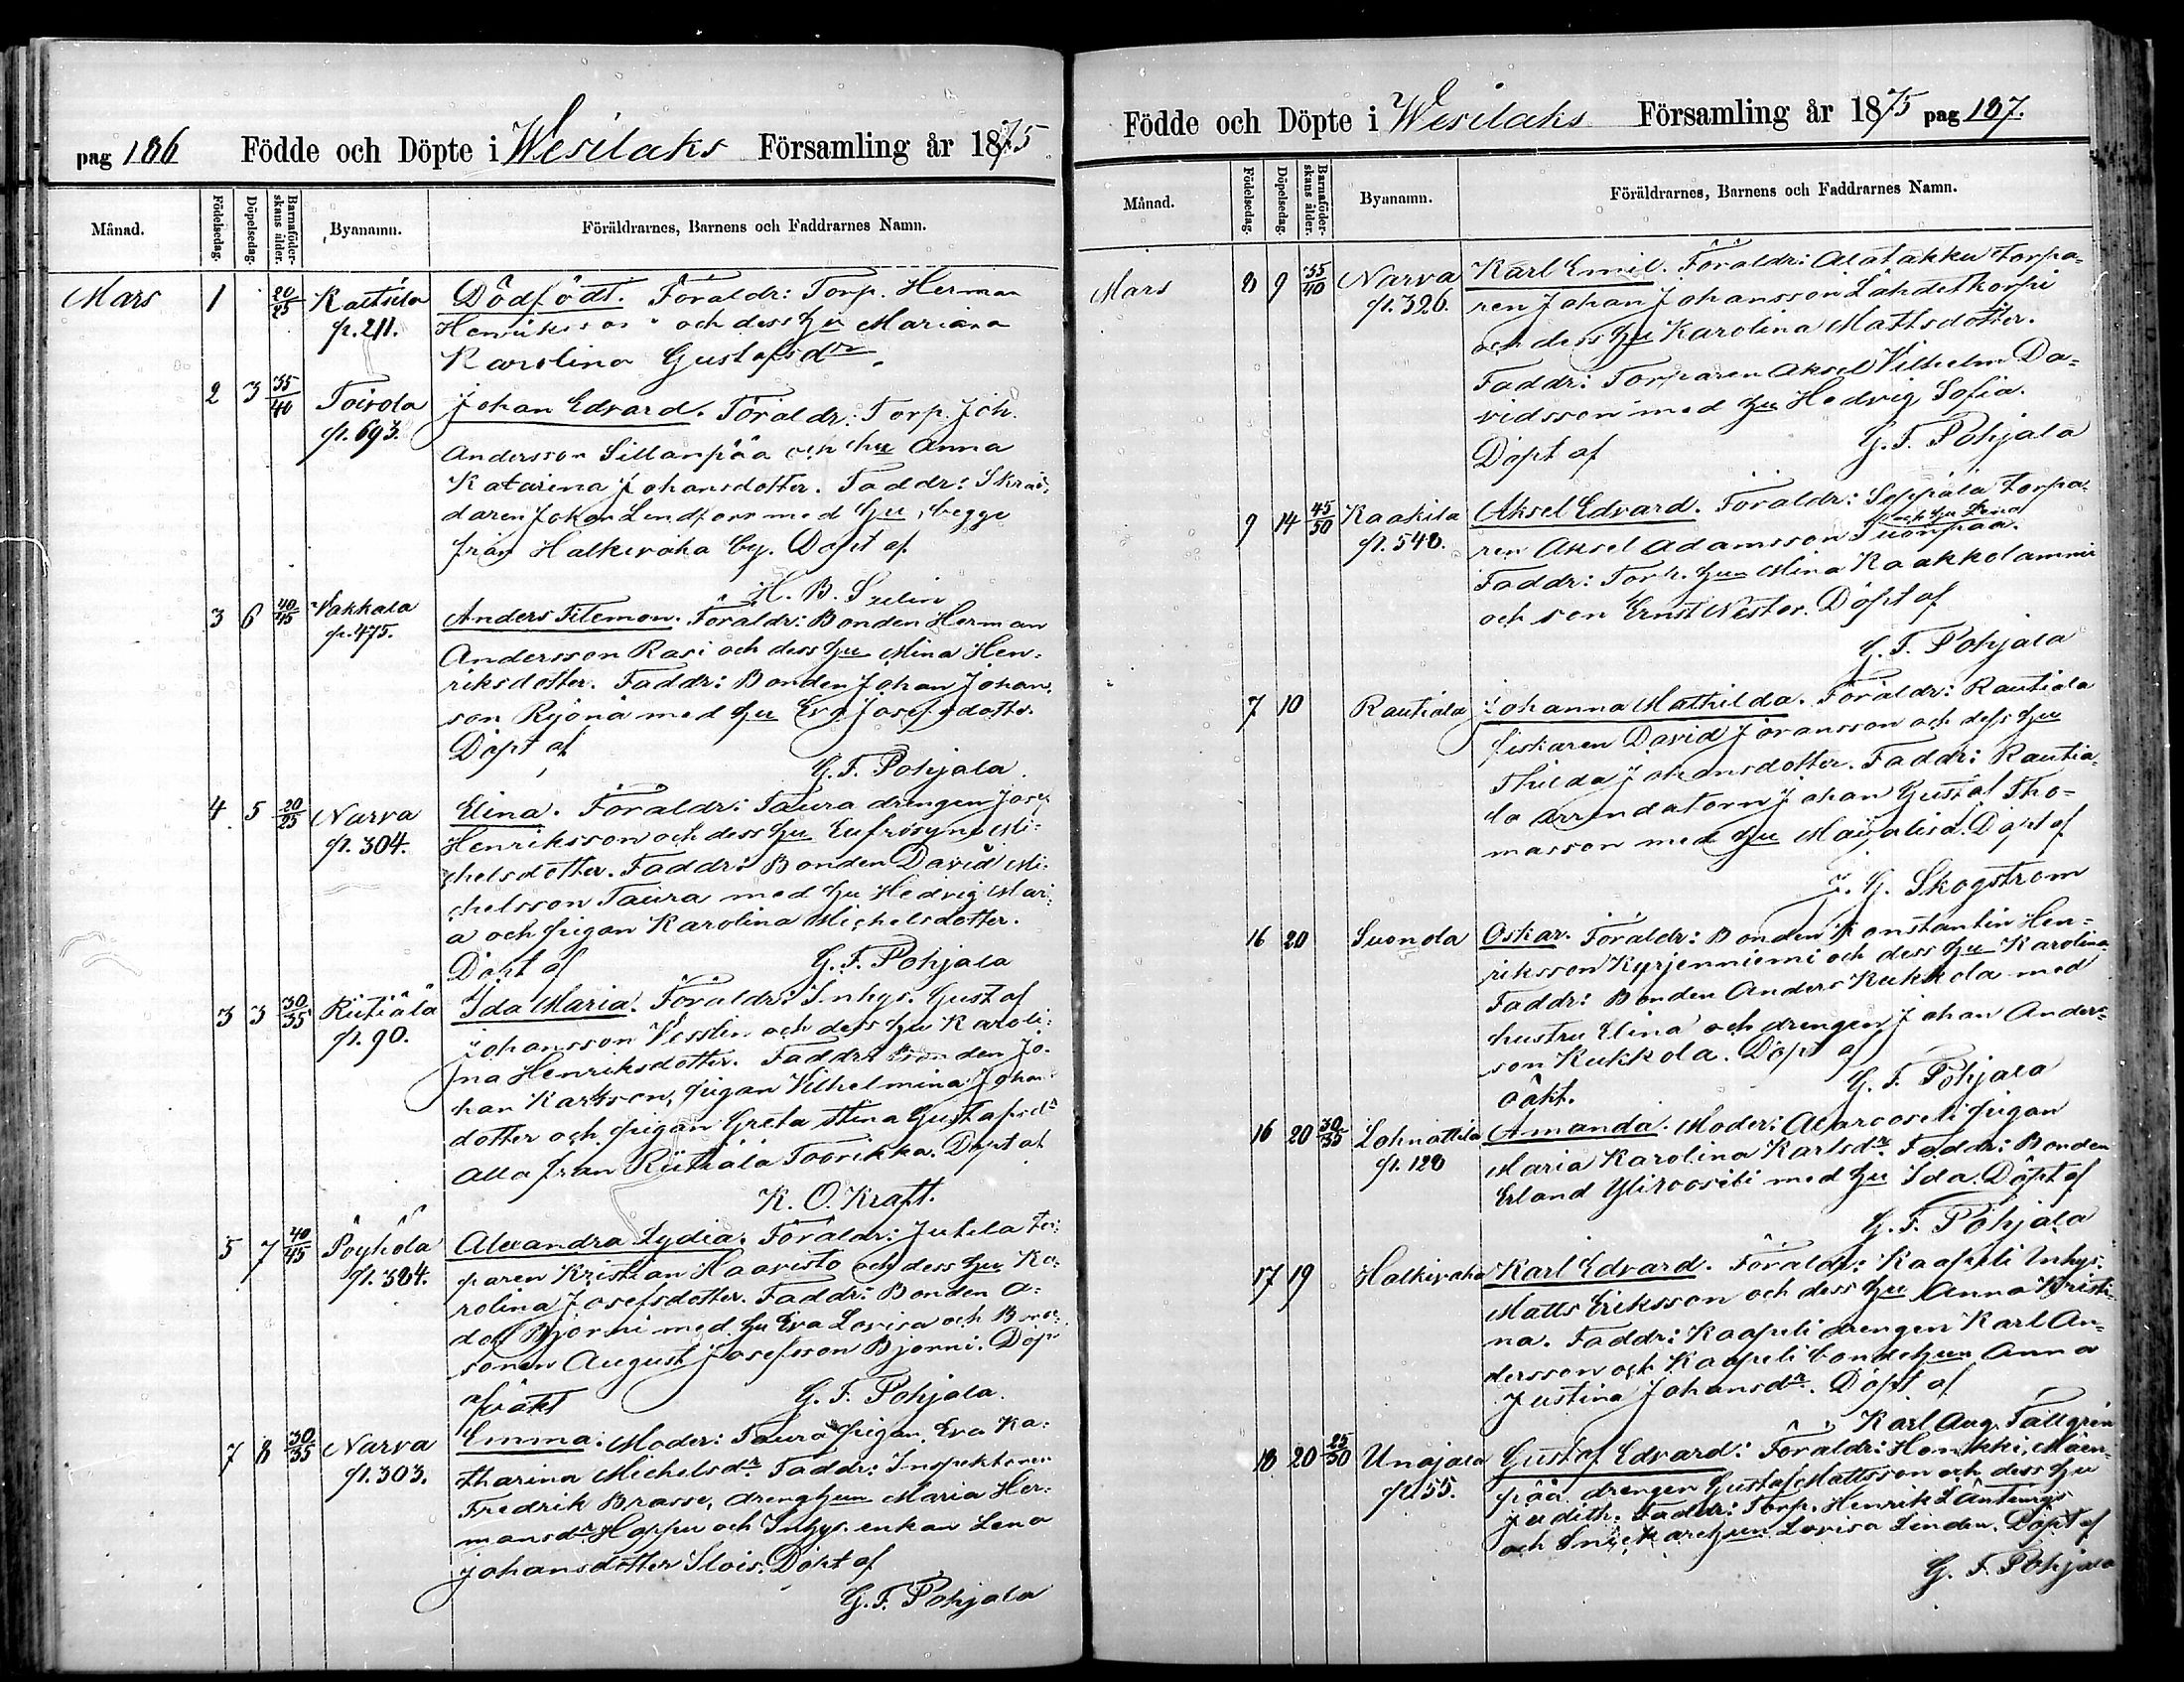 pag 186 Födde och Döpte i Wesilaks Församling år 1875.
Månad.
Födelsedag.
Döpelsedag.
Barnaföder-
skans ålder.
Byanamn.
Föräldrarnes, Barnens och Faddrarnes Namn.
Mars 1 20/25 Kaltsila Dödfödt. Föräldr: Torp. Herman
p. 211. Henriksson och dess hu Mariana
Karolina Gustafsdr.
2 3 35/40 Toivola Johan Edvard. Föräldr: Torp. Joh.
p. 693. Andersson Sillanpää och hu Anna
Katarina Johansdotter. Faddr: Skräd-
daren Johan Lendforr med hu, begge
från Halkivaha by. Döpt af
H. B. Selin
3 6 40/45 Vakkala Anders Filemon. Föräldr: Bonden Herman
p. 475. Andersson Rasi och dess hu Mina Hen-
riksdotter. Faddr: Bonden Johan Johan-
son Ryönä med hu Eva Josefsdotter.
Döpt af
G. F. Pohjala.
4 5 20/25 Narva Elina. Föräldr: Taura drengen Josef
p. 304. Henriksson och dess hu Eufrosyne Mi-
chelsdotter. Faddr: Bonden David Mi-
chelsson Taura med hu Hedvig Mari-
a och pigan Karolina Michelsdotter.
Döpt af G. F. Pohjala
3 3 30/35 Riitiälä Ida Maria. Föräldr: Inhys. Gustaf
p. 90. Johansson Vesslin och dess hu Karoli-
na Henriksdotter. Faddr: Bonden Jo-
han Karlsson, pigan Vilhelmina Johan-
dotter och pigan Greta Stina Gustafsdr
alla från Riitiälä Toorikka. Döpt af
K. O. Kraft.
5 7 40/45 Pöyhölä Alexandra Lydia. Föräldr: Jutila tor-
p. 384. paren Kristian Haavisto och dess hu Ka-
rolina Josefsdotter. Faddr: Bonden A-
dolf Björni med hu Eva Lovisa och Bonde-
sonen August Josefsson Björni. Döpt
af G. F. Pohjala.
7 8 30/35 Narva Emma. Moder: Taura pigan Eva Ka-
p. 303. tharina Michelsdr. Faddr: Inspektoren
Fredrik Brasse, drenghun Maria Her-
mansdr Hoppu och Inhys. enkan Lena
Johansdotter Slois. Döpt af
G. F. Pohjala
Födde och Döpte i Wesilaks Församling år 1875 pag 187.
Månad.
Födelsedag.
Döpelsedag.
Barnaföder-
skans ålder.
Byanamn.
Föräldrarnes, Barnens och Faddrarnes Namn.
Mars 8 9 35/40 Narva Karl Emil. Föräldr: Alatakku torpa-
p. 326. ren Johan Johansson Lähdekorpi
och dess hu Karolina Mattsdotter.
Faddr: Torparen Aksel Vilhelm Da-
vidsson med hu Hedvig Sofia.
Döpt af G. F. Pohjala
9 14 45/50 Kaakila Aksel Edvard. Föräldr: Seppälä torpa-
p. 548. ren Aksel Adamsson Suonpää.
och hu Lena
Faddr: Torp. hun Mina Kaakkolammi
och son Ernst Nestor. Döpt af
G. F. Pohjala
7 10 Rautiala Johanna Mathilda. Föräldr: Rautiala
fiskaren David Joransson och dess hu
Thilda Johansdotter. Faddr: Rautia-
la arrendatorn Johan Gustaf Tho-
masson med hu Majalisa. Döpt af
J. G. Skogström
16 20 Suonola Oskar. Föräldr: Bonden Konstantin Hen-
riksson Kyrjenniemi och dess hu Karolina
Faddr: Bonden Anders Kukkola med
hustru Elina och drengen Johan Anders-
son Kukkola. Döpt af
G. F. Pohjala
16 20 30/35 Lohnottila Amanda. Moder: Alarooseli pigan
p. 128 Maria Karolina Karlsdr. Faddr: Bonden
Erland Ylirooseli med hu Ida. Döpt af
G. F. Pohjala
17 19 Halkivaha Karl Edvard. Föräldr: Kaapeli Inhys.
Matts Eriksson och dess hu Anna Kristi-
na. Faddr: Kaapeli drengen Karl An-
dersson och Kaapeli bondehun Anna
Justina Johansdr. Döpt af
Karl Aug. Tallgren
18 20 25/30 Unajala Gustaf Edvard: Föräldr: Honkki, Mäen-
p. 55. pää drengen Gustaf Mattsson och dess hu
Judith. Faddr: Torp. Henrik Läntengs
och Snickarehun Lovisa Linden. Döpt af
G. F. Pohjala